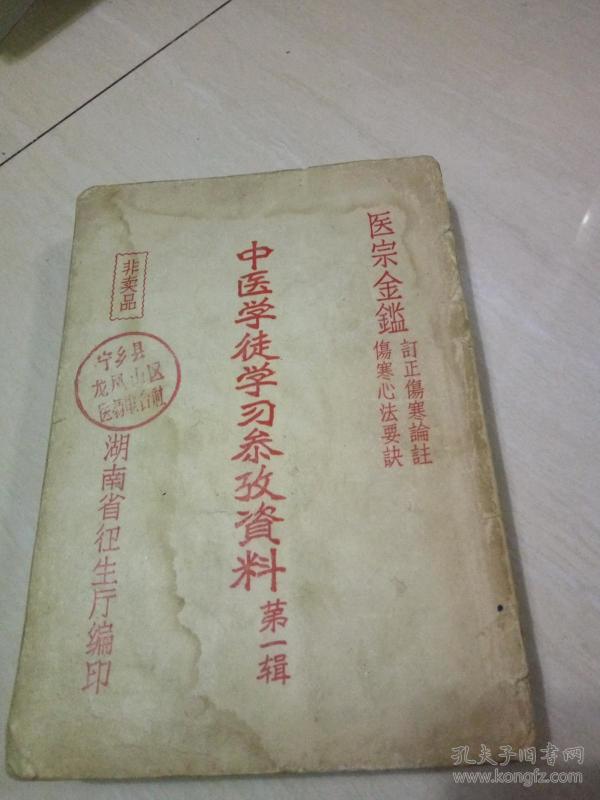 医宗金鑑
訂正傷寒論註
傷寒心法要訣
中医学徒学习参攷資料
第一辑
非卖品
宁乡县
龙凤山区
医药联合
湖南省卫生厅编印
孔夫子旧书网
www.kongfz.com